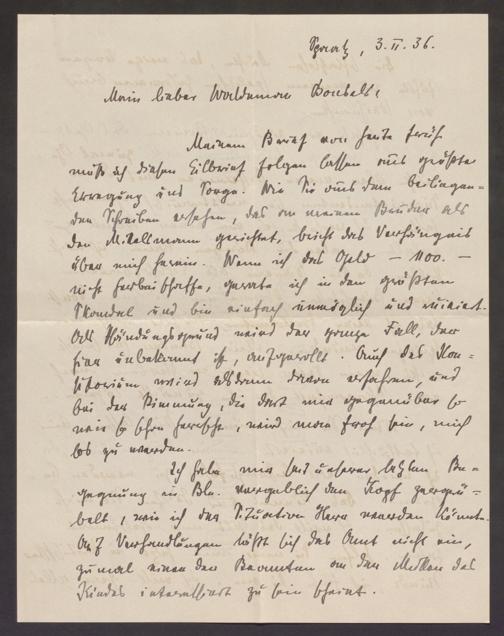 3. II. 36.
Mein lieber Waldemar Bonsels,
Meinem Brief von heute früh
muß ich diesen Eilbrief folgen lassen aus größter
Erregung und Sorge. Wie Sie aus dem beiliegen=
den Schreiben ersehen, das an meinen Bruder als
den Mittelsmann gerichtet, bricht das Verhängnis
über mich herein. Wenn ich das Geld — 1100. —
nicht herbeischaffe, gerate ich in den größten
Skandal und bin einfach unmöglich und ruiniert.
Als Pfändungsgrund wird der ganze Fall, der
hier unbekannt ist, aufgerollt. Auch das Kon=
sistorium wird alsdann davon erfahren, und
bei der Stimmung, die dort mir gegenüber so
wie so schon herrscht, wird man froh sein, mich
los zu werden.
Ich habe mir seit unserer letzten Be=
gegnung in Bln. vergeblich den Kopf zergrü=
belt, wie ich der Situation Herr werden könnte.
Auf Verhandlungen läßt sich das Amt nicht ein,
zumal einer der Beamten an der Mutter des
Kindes interessiert zu sein scheint.